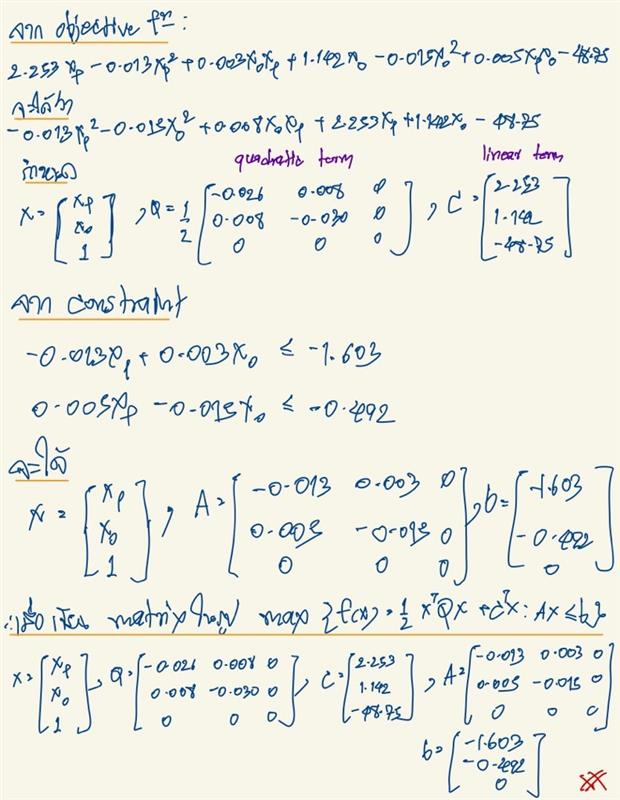 จาก objective fⁿ :
2.253 x_p - 0.013x_p² + 0.003x_0x_p + 1.142x_0 - 0.015x_0² + 0.005x_px_0 - 48.75
จะได้ว่า
-0.013x_p² - 0.015x_0² + 0.008x_0x_p + 2.253x_p + 1.142x_0 - 48.75
quadratic term linear term
กำหนด
x = [x_p; x_0; 1], Q = 1/2 [-0.026 0.008 0; 0.008 -0.030 0; 0 0 0], C = [2.253; 1.142; -48.75]
จาก constraint
-0.013x_p + 0.003x_0 ≤ -1.603
0.005x_p - 0.015x_0 ≤ -0.492
จะได้
x = [x_p; x_0; 1], A = [-0.013 0.003 0; 0.005 -0.015 0; 0 0 0], b = [-1.603; -0.492; 0]
∴ เมื่อเขียน matrix ในรูป max {f(x) = 1/2 xᵀQx + cᵀx : Ax ≤ b}
x = [x_p; x_0; 1], Q = [-0.026 0.008 0; 0.008 -0.030 0; 0 0 0], C = [2.253; 1.142; -48.75], A = [-0.013 0.003 0; 0.005 -0.015 0; 0 0 0]
b = [-1.603; -0.492; 0]